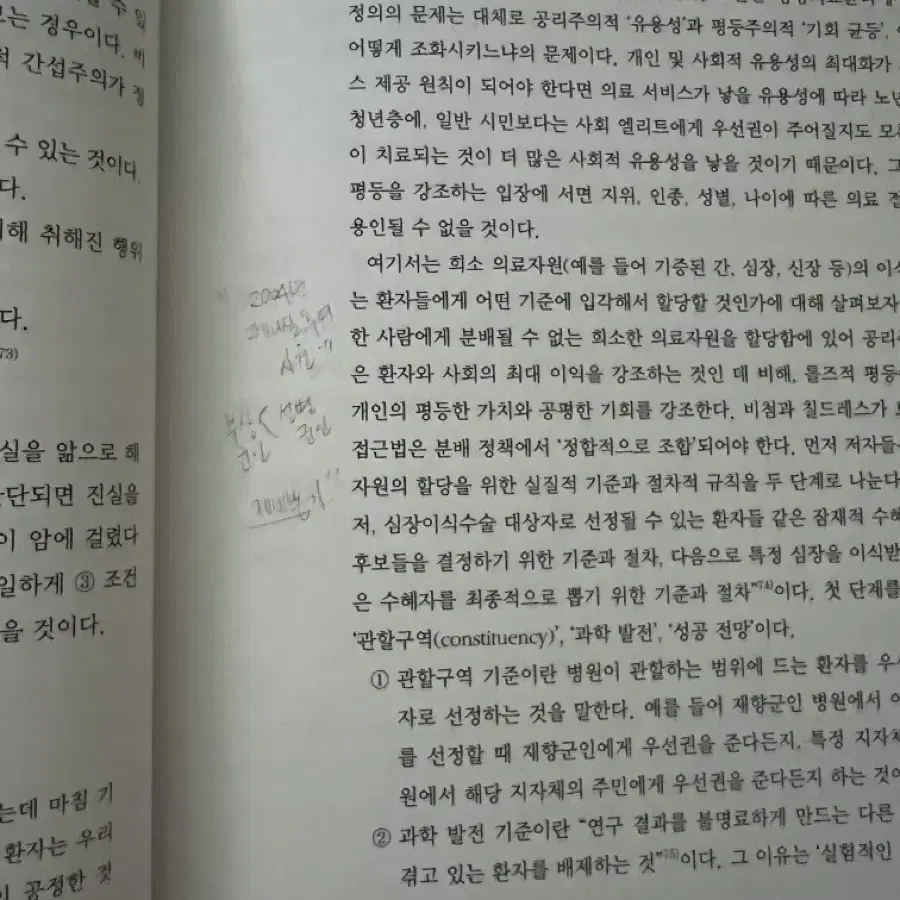 수 있
는 경우이다. 비
적 간섭주의가 정
수 있는 것이다.
다.
해 취해진 행위
다.
73)
실을 앎으로 해
단되면 진실을
이 암에 걸렸다
일하게 ③ 조건
을 것이다.
는데 마침 기
환자는 우리
공정한 것
정의의 문제는 대체로 공리주의적 ‘유용성’과 평등주의적 ‘기회 균등’,
어떻게 조화시키느냐의 문제이다. 개인 및 사회적 유용성의 최대화가
스 제공 원칙이 되어야 한다면 의료 서비스가 낳을 유용성에 따라 노년
청년층에, 일반 시민보다는 사회 엘리트에게 우선권이 주어질지도 모
이 치료되는 것이 더 많은 사회적 유용성을 낳을 것이기 때문이다. 그
평등을 강조하는 입장에 서면 지위, 인종, 성별, 나이에 따른 의료 접
용인될 수 없을 것이다.
여기서는 희소 의료자원(예를 들어 기증된 간, 심장, 신장 등)의 이식
는 환자들에게 어떤 기준에 입각해서 할당할 것인가에 대해 살펴보자
한 사람에게 분배될 수 없는 희소한 의료자원을 할당함에 있어 공리
은 환자와 사회의 최대 이익을 강조하는 것인 데 비해, 롤즈적 평등
개인의 평등한 가치와 공평한 기회를 강조한다. 비첨과 칠드레스가
접근법은 분배 정책에서 ‘정합적으로 조합’되어야 한다. 먼저 저자들
자원의 할당을 위한 실질적 기준과 절차적 규칙을 두 단계로 나눈다
저, 심장이식수술 대상자로 선정될 수 있는 환자들 같은 잠재적 수혜
후보들을 결정하기 위한 기준과 절차, 다음으로 특정 심장을 이식받
은 수혜자를 최종적으로 뽑기 위한 기준과 절차”74)이다. 첫 단계를
‘관할구역(constituency)’, ‘과학 발전’, ‘성공 전망’이다.
① 관할구역 기준이란 병원이 관할하는 범위에 드는 환자를 우
자로 선정하는 것을 말한다. 예를 들어 재향군인 병원에서
를 선정할 때 재향군인에게 우선권을 준다든지, 특정 지자체
원에서 해당 지자체의 주민에게 우선권을 준다든지 하는 것
② 과학 발전 기준이란 “연구 결과를 불명료하게 만드는 다른
겪고 있는 환자를 배제하는 것”75)이다. 그 이유는 ‘실험적인
2024년
부상 &lt; 성병
군인 군인